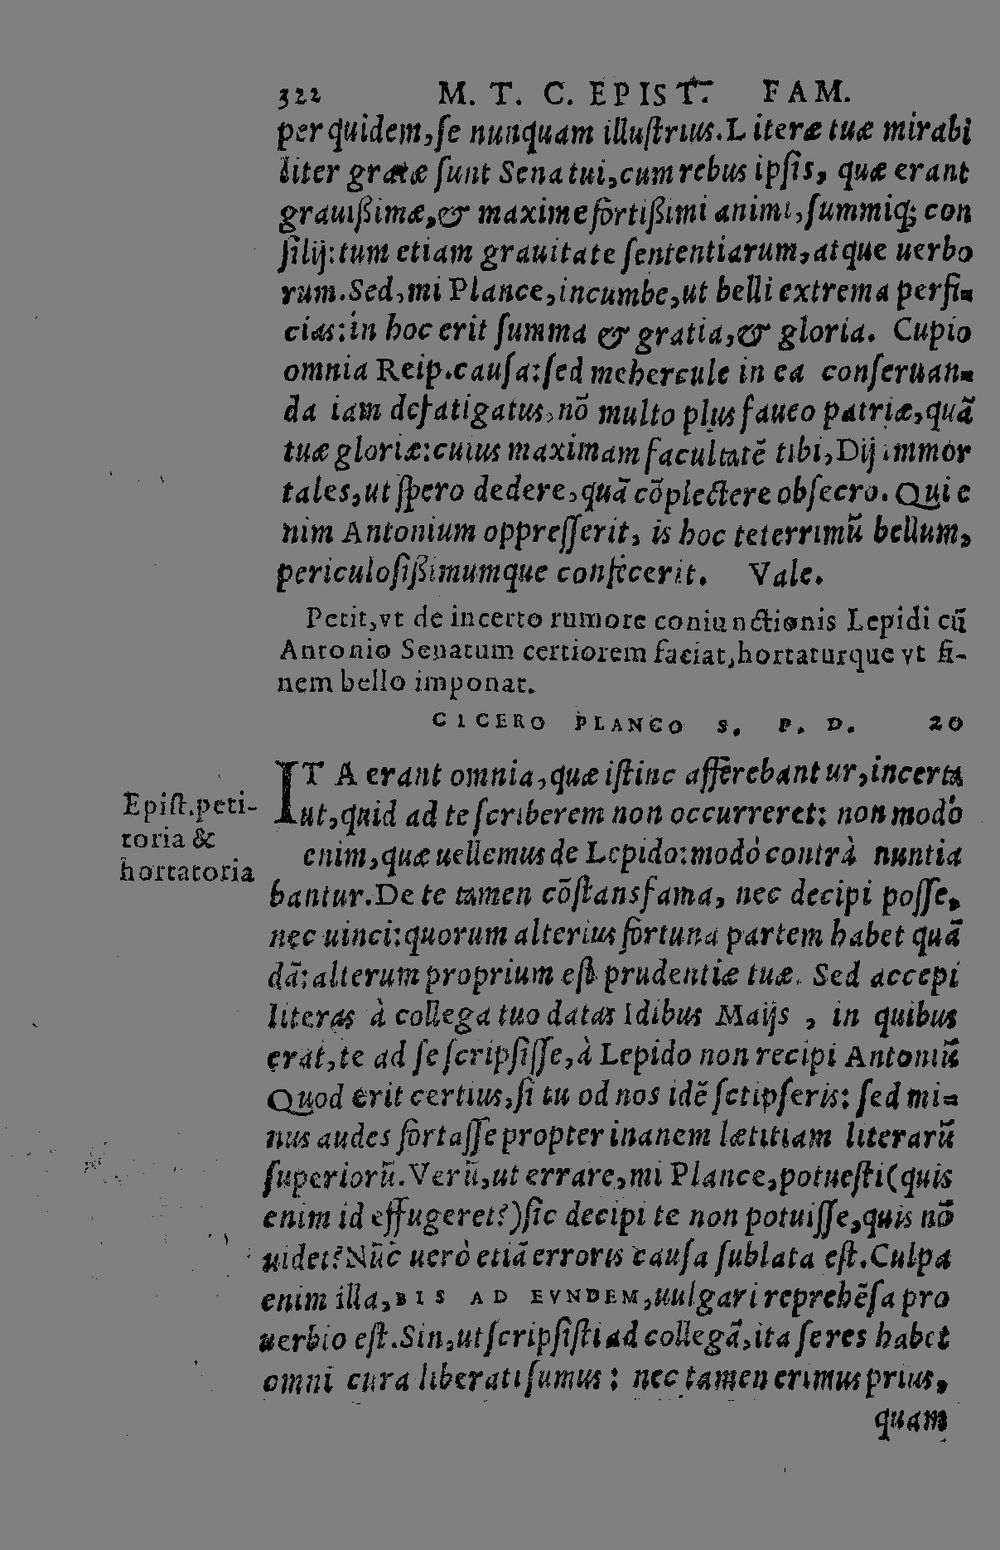 322 M. T. C. EPIST. FAM.
per quidem, se nunquam illustrius. Literæ tuæ mirabi
liter gratæ sunt Senatui, cum rebus ipsis, quæ erant
grauißimæ, & maxime fortißimi animi, summiq; con
silij: tum etiam grauitate sententiarum, atque uerbo
rum. Sed, mi Plance, incumbe, ut belli extrema perfi-
cias: in hoc erit summa & gratia, & gloria. Cupio
omnia Reip. causa: sed mehercule in ea conseruan-
da iam defatigatus, nō multo plus faueo patriæ, quā
tuæ gloriæ: cuius maximam facultatē tibi, Dij immor
tales, ut spero dedere, quā cōplectere obsecro. Qui e
nim Antonium oppresserit, is hoc teterrimū bellum,
periculosißimumque confecerit. Vale.
Petit, vt de incerto rumore coniunctionis Lepidi cū
Antonio Senatum certiorem faciat, hortaturque vt fi-
nem bello imponat.
CICERO PLANCO S. P. D. 20
ITA erant omnia, quæ istinc afferebantur, incerta
ut, quid ad te scriberem non occurreret: non modò
Epist. peti-
toria &
hortatoria
enim, quæ uellemus de Lepido: modò contrà nuntia
bantur. De te tamen cōstans fama, nec decipi posse,
nec uinci: quorum alterius fortuna partem habet quā
dā: alterum proprium est prudentiæ tuæ. Sed accepi
literas à collega tuo datas Idibus Maijs, in quibus
erat, te ad se scripsisse, à Lepido non recipi Antoniū
Quod erit certius, si tu od nos idē sctipseris: sed mi-
nus audes fortasse propter inanem lætitiam literarū
superiorū. Verū, ut errare, mi Plance, potuesti (quis
enim id effugeret?) sic decipi te non potuisse, quis nō
uidet? Nūc uerò etiā erroris causa sublata est. Culpa
enim illa, BIS AD EVNDEM, uulgari reprehēsa pro
uerbio est. Sin, ut scripsisti ad collegā, ita se res habet
omni cura liberati sumus: nec tamen erimus prius,
quam